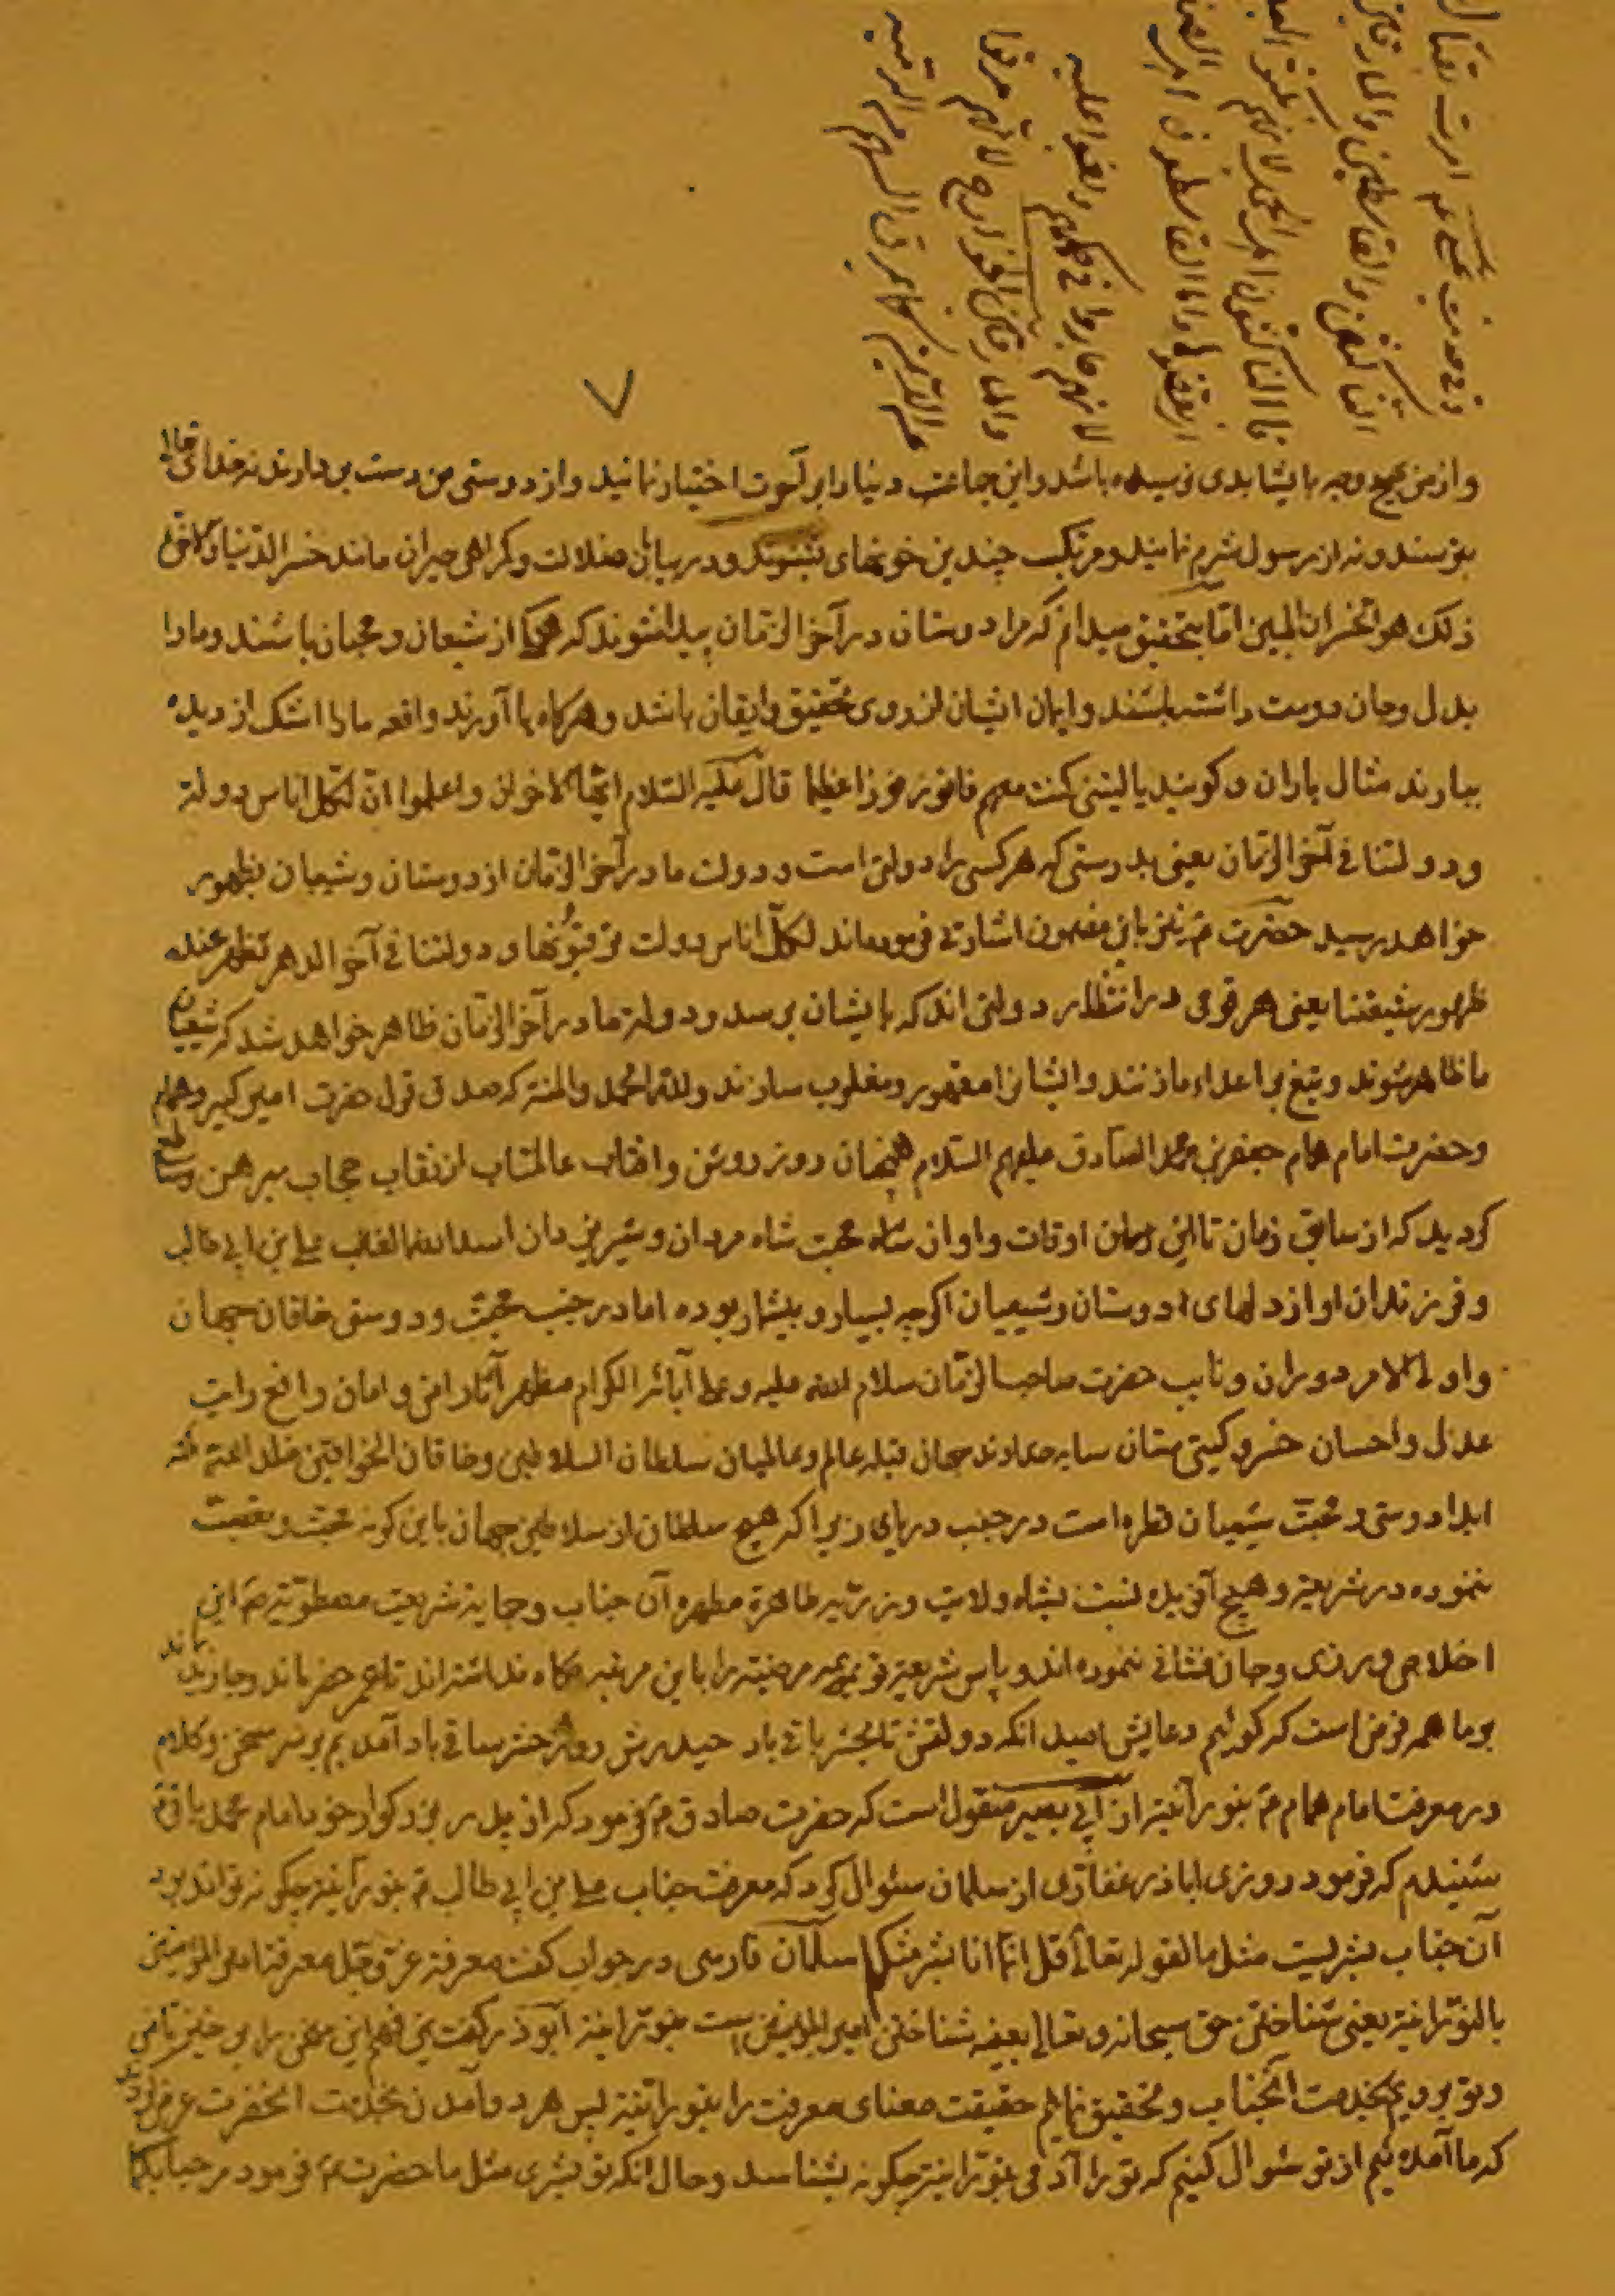 وفی حدیث علی ع م امرت بقتال
الناکثین والقاسطین والمارقین
فاالناکثون اهل الجمل لانهم نکثوا
واما القاسطون اهل
لانهم جاروا فی حکمهم وبغوا علیه
والمارقین الخوارج لانهم مرقوا
من الدین کما یمرق السهم من الرمیه
واز من هیچ وجه بایشان بدی نرسیده باشد و این جماعت دنیا را بر آخرت اختیار نمایند و از دوستی من دست بردارند نه از خدای تعالی
بترسند و نه از رسول شرم نمایند و مرتکب چندین خونهای شوند و در بیابان ضلالت و کمراهی حیران مانند خسر الدنیا والاخرة
ذلک هو الخسران المبین اما بتحقیق میدانم که مرا دوستان در آخر الزمان پیدا شوند که همه از شیعان و محبان باشند و ما را
بدل و جان دوست داشته باشند و ایمان ایشان از روی تحقیق و ایقان باشد و هر کاه یاد آورند واقعه ما را اشک از دیده
ببارند مثال باران و کویند یا لیتنی کنت معهم فافوز فوزا عظیما قال علیه السلام ایها الاخوان واعلموا ان لکل اناس دولة
ودولتنا فی آخر الزمان یعنی بدرستی که هر کسی را دولتی است و دولت ما در آخر الزمان از دوستان و شیعیان بظهور
خواهد رسید حضرت ع م نیز باین مضمون اشارتی فرموده اند لکل اناس دولت یرقبونها و دولتنا فی آخر الدهر تظهر عنده
ظهور شیعتنا یعنی هر قومی در انتظار دولتی اند که بایشان برسد و دولة ما در آخر الزمان ظاهر خواهد شد که شیعیان
ما ظاهر شوند و تیغ بر اعداء ما زنند و ایشانرا مقهور و مغلوب سازند ولله الحمد والمنه که صدق قول حضرت امیر کبیر
و حضرت امام همام جعفر بن محمد الصادق علیهم السلام همچنان روز روشن و افتاب عالمتاب از نقاب حجاب مبرهن و ساطع
کردید که از سابق زمان تا این اوقات و اوان محبت شاه مردان و شیر یزدان اسد الله الغالب علی ابن ابی طالب
و فرزندان او از دلهای دوستان و شیعیان اکرچه بسیار و بیشمار بوده اما در جنب محبت و دوستی خاقان جهان
و اولی الامر دوران و نایب حضرت صاحب الزمان سلام الله علیه و علی آبائه الکرام مظهر آثار امن و امان رافع رایت
عدل و احسان خسرو کیتی ستان سایه خداوند سبحان قبله عالم و عالمیان سلطان السلاطین و خاقان الخواقین خلد الله ملکه
ابدا دوستی و محبت شیعیان قطره است در جنب دریای زیرا که هیچ سلطان از سلاطین جهان باین کونه محبت و
ننموده در شریعة و هیچ آفریده نسبت بشاه ولایت و ذریه طاهرة مطهره آن جناب و حمایة شریعت مصطفویه ص این
اخلاص ورزی و جان فشانی ننموده اند و پاس شریعة نبویه مرضیه را باین مرتبه نکاه نداشته اند تا عمر خضر ماند و جاوید بماند
بر ما همه فرض است که کوئیم دعایش امید انکه دولتش تا بحشر باقی باد حیدرش روز حشر ساقی باد آمدیم بر سر سخن و کلام
در معرفت امام همام ع م بنورانیة از ابی بصیر منقول است که حضرت صادق ع م فرمود که از پدر بزرکوار خود امام محمد باقر ع م
شنیدم که فرمود روزی اباذر غفاری از سلمان سئوال کرد که معرفت جناب علی بن ابی طالب ع م بنورانیة چکونه تواند بود
آن جناب بشریست مثل ما لقوله تعالی قل انما انا بشر مثلکم سلمان فارسی در جواب کفت معرفة عز وجل معرفة امیر المومنین
بالنورانیة یعنی شناختن حق سبحانه و تعالی بعینه شناختن امیر المومنین است بنورانیة ابوذر کفت من فهم این معنی را بر خیز تا من
و تو برویم بخدمت آنجناب و تحقیق نمائیم حقیقت معنای معرفت را بنورانیة پس هر دو آمدن بخدمت انحضرت عرض کردند
که ما آمده ایم از تو سئوال کنیم که تو را آدمی بنورانیة چکونه بشناسد و حال انکه تو بشری مثل ما حضرت ع م فرمود مرحبا بکما